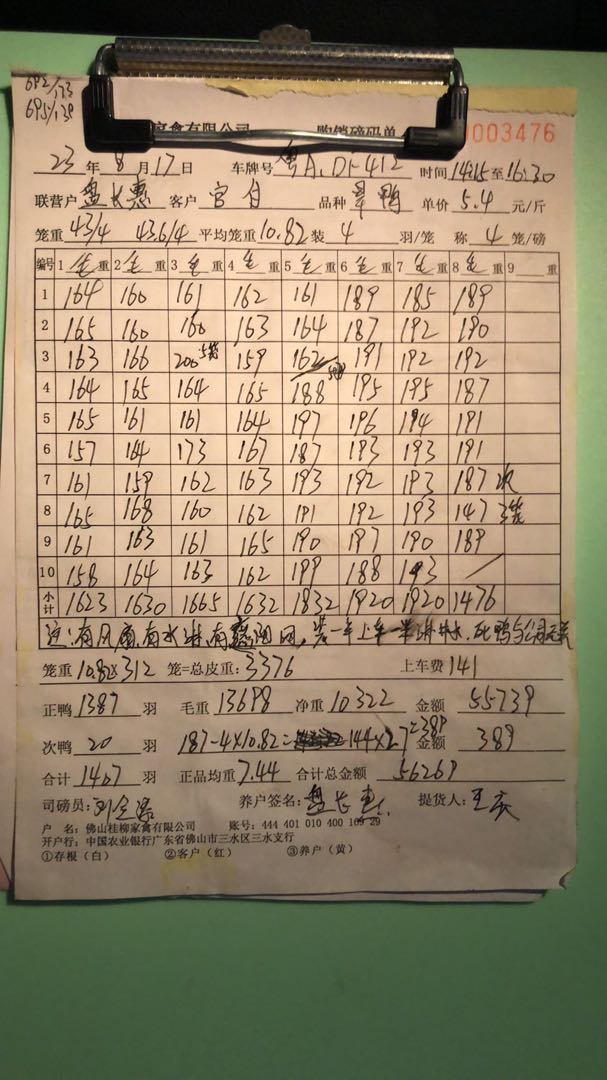 692/173
695/139
家禽有限公司 购销磅码单 0003476
23年8月17日 车牌号 粤A.DF412 时间14:15至16:30
联营户 盘长惠 客户 品种 鸭 单价5.4元/斤
笼重43/4 43.6/4 平均笼重10.82装4羽/笼 称4笼/磅
编号 1毛重 2毛重 3毛重 4毛重 5毛重 6毛重 7毛重 8毛重 9 重
1 164 160 161 162 161 189 185 189
2 165 160 160 163 164 187 192 190
3 163 166 200 159 162 191 192 192
4 164 165 164 165 188 195 195 187
5 165 161 161 164 197 196 194 191
6 157 164 173 167 187 193 193 191
7 161 159 162 163 193 192 193 187 次
8 165 168 160 162 191 192 193 147 3笼
9 161 163 161 165 190 197 190 189
10 158 164 163 162 199 188 193 /
小计 1623 1630 1665 1632 1832 1920 1920 1476
注:有风扇,有水淋,有 网,装一车上车 淋水,死鸭与公司无关
笼重10.82×312 笼=总皮重:3376 上车费141
正鸭1387羽 毛重13698 净重10322 金额55739
次鸭20羽 187-4×10.82= 144×2.7=389 金额389
合计1407羽 正品均重7.44 合计总金额56269
司磅员: 养户签名:盘长惠 提货人:王庆
户 名:佛山桂柳家禽有限公司 账号:444 401 010 400 109 29
开户行:中国农业银行广东省佛山市三水区三水支行
①存根(白) ②客户(红) ③养户(黄)